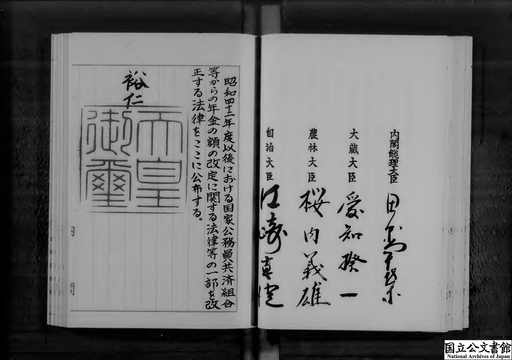 昭和四十二年度以後における国家公務員共済組合
等からの年金の額の改定に関する法律等の一部を改
正する法律をここに公布する。
裕仁
天皇
御璽
内閣総理大臣
田中角栄
大蔵大臣
愛知揆一
農林大臣
桜内義雄
自治大臣
江崎真澄
国立公文書館
National Archives of Japan